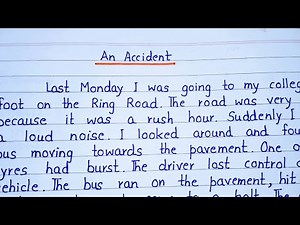 An Accident
Last Monday I was going to my colleg
foot on the Ring Road. The road was very
because it was a rush hour. Suddenly I
a loud noise. I looked around and fou
bus moving towards the pavement. One o
tyres had burst. The driver lost control o
ehicle. The bus ran on the pavement, hit
to a halt. The